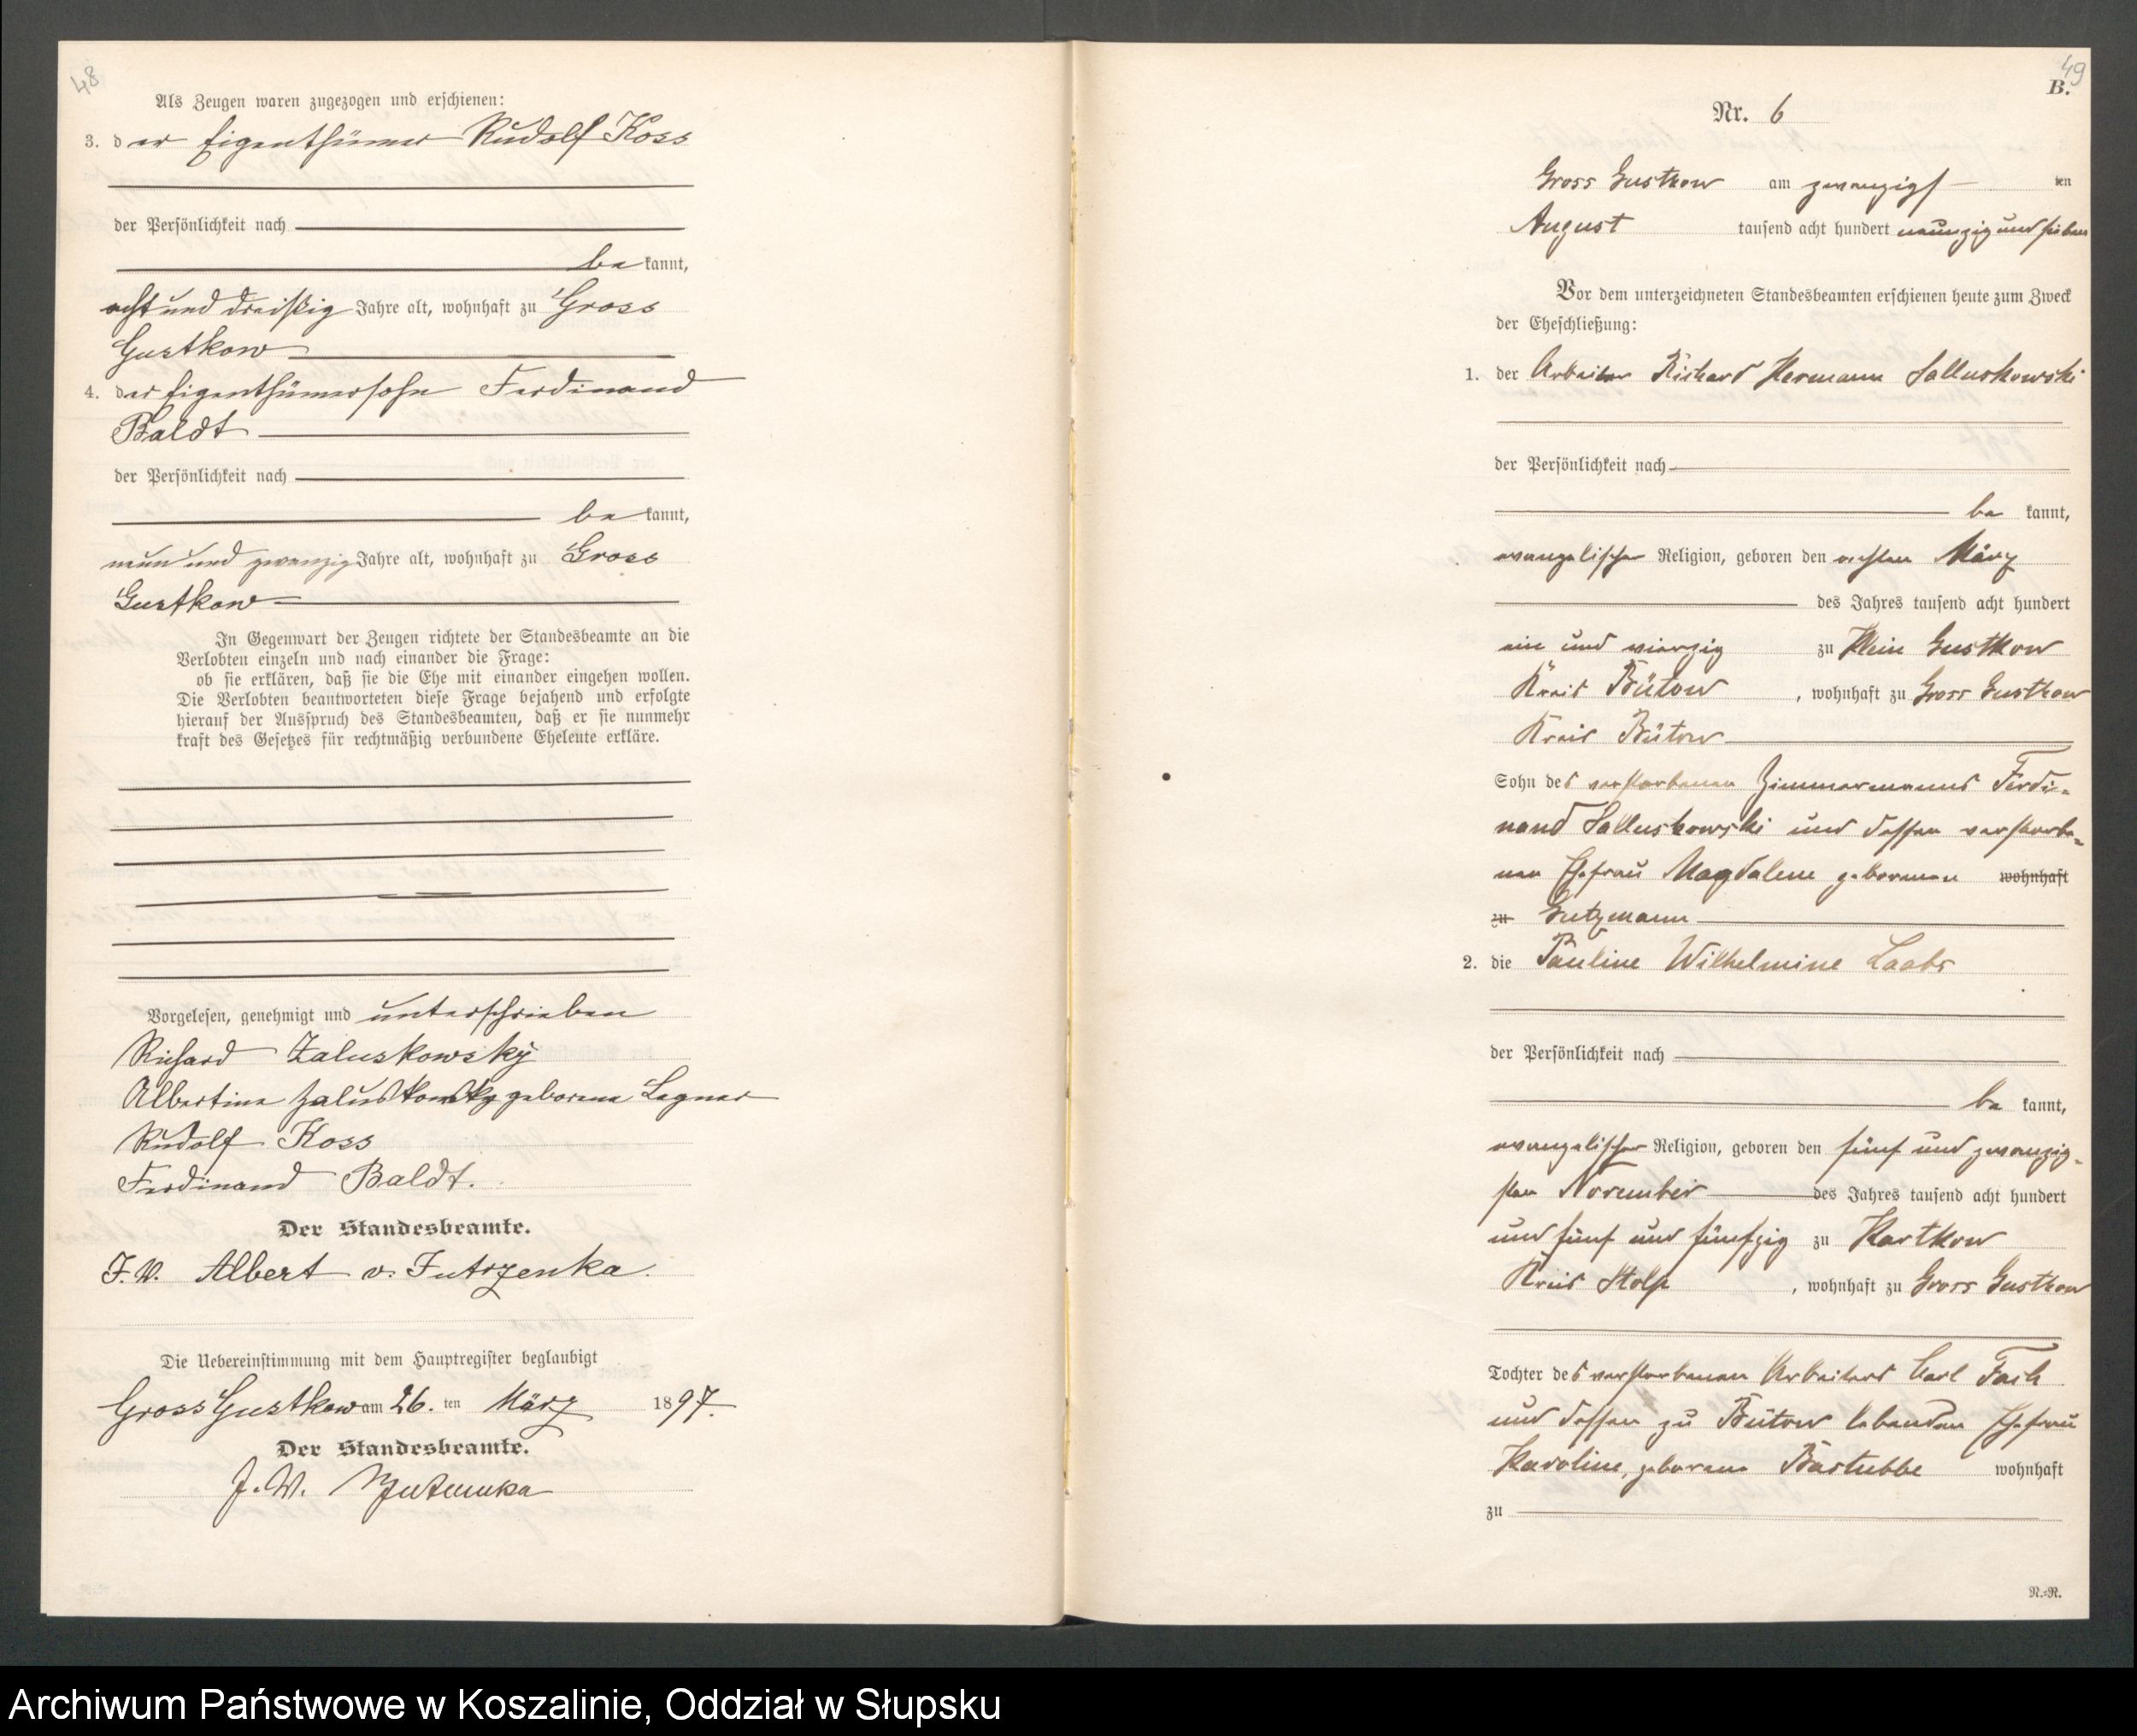 48
Als Zeugen waren zugezogen und erschienen:
3. der Eigenthümer Rudolf Koss
der Persönlichkeit nach
bekannt,
acht und dreißig Jahre alt, wohnhaft zu Gross
Gustkow
4. der Eigenthümersohn Ferdinand
Baldt
der Persönlichkeit nach
bekannt,
neun und zwanzig Jahre alt, wohnhaft zu Gross
Gustkow
In Gegenwart der Zeugen richtete der Standesbeamte an die
Verlobten einzeln und nach einander die Frage:
ob sie erklären, daß sie die Ehe mit einander eingehen wollen.
Die Verlobten beantworteten diese Frage bejahend und erfolgte
hierauf der Ausspruch des Standesbeamten, daß er sie nunmehr
kraft des Gesetzes für rechtmäßig verbundene Eheleute erkläre.
Vorgelesen, genehmigt und unterschrieben
Richard Zaluskowsky
Albertine Zaluskowsky geborene Legner
Rudolf Koss
Ferdinand Baldt.
Der Standesbeamte.
J. V. Albert v. Jutrzenka.
Die Uebereinstimmung mit dem Hauptregister beglaubigt
Gross Gustkow am 26. ten März 1897.
Der Standesbeamte.
J. V.
49
B.
Nr. 6
Gross Gustkow am zwanzigsten
August tausend acht hundert neunzig und sieben
Vor dem unterzeichneten Standesbeamten erschienen heute zum Zweck
der Eheschließung:
1. der Arbeiter Richard Hermann Salluskowski
der Persönlichkeit nach
bekannt,
evangelischer Religion, geboren den achten März
des Jahres tausend acht hundert
ein und vierzig zu Klein Gustkow
Kreis Bütow, wohnhaft zu Gross Gustkow
Kreis Bütow
Sohn des verstorbenen Zimmermanns Ferdi-
nand Salluskowski und dessen verstorbe-
nen Ehefrau Magdalene geborenen wohnhaft
zu Gutzmann
2. die Pauline Wilhelmine Laabs
der Persönlichkeit nach
bekannt,
evangelischer Religion, geboren den fünf und zwanzig-
sten November des Jahres tausend acht hundert
und fünf und fünfzig zu Kartkow
Kreis Stolp, wohnhaft zu Gross Gustkow
Tochter des verstorbenen Arbeiters Carl
und dessen zu Bütow lebenden Ehefrau
Karoline, geborene Bastubbe wohnhaft
zu
N.=R.
Archiwum Państwowe w Koszalinie, Oddział w Słupsku